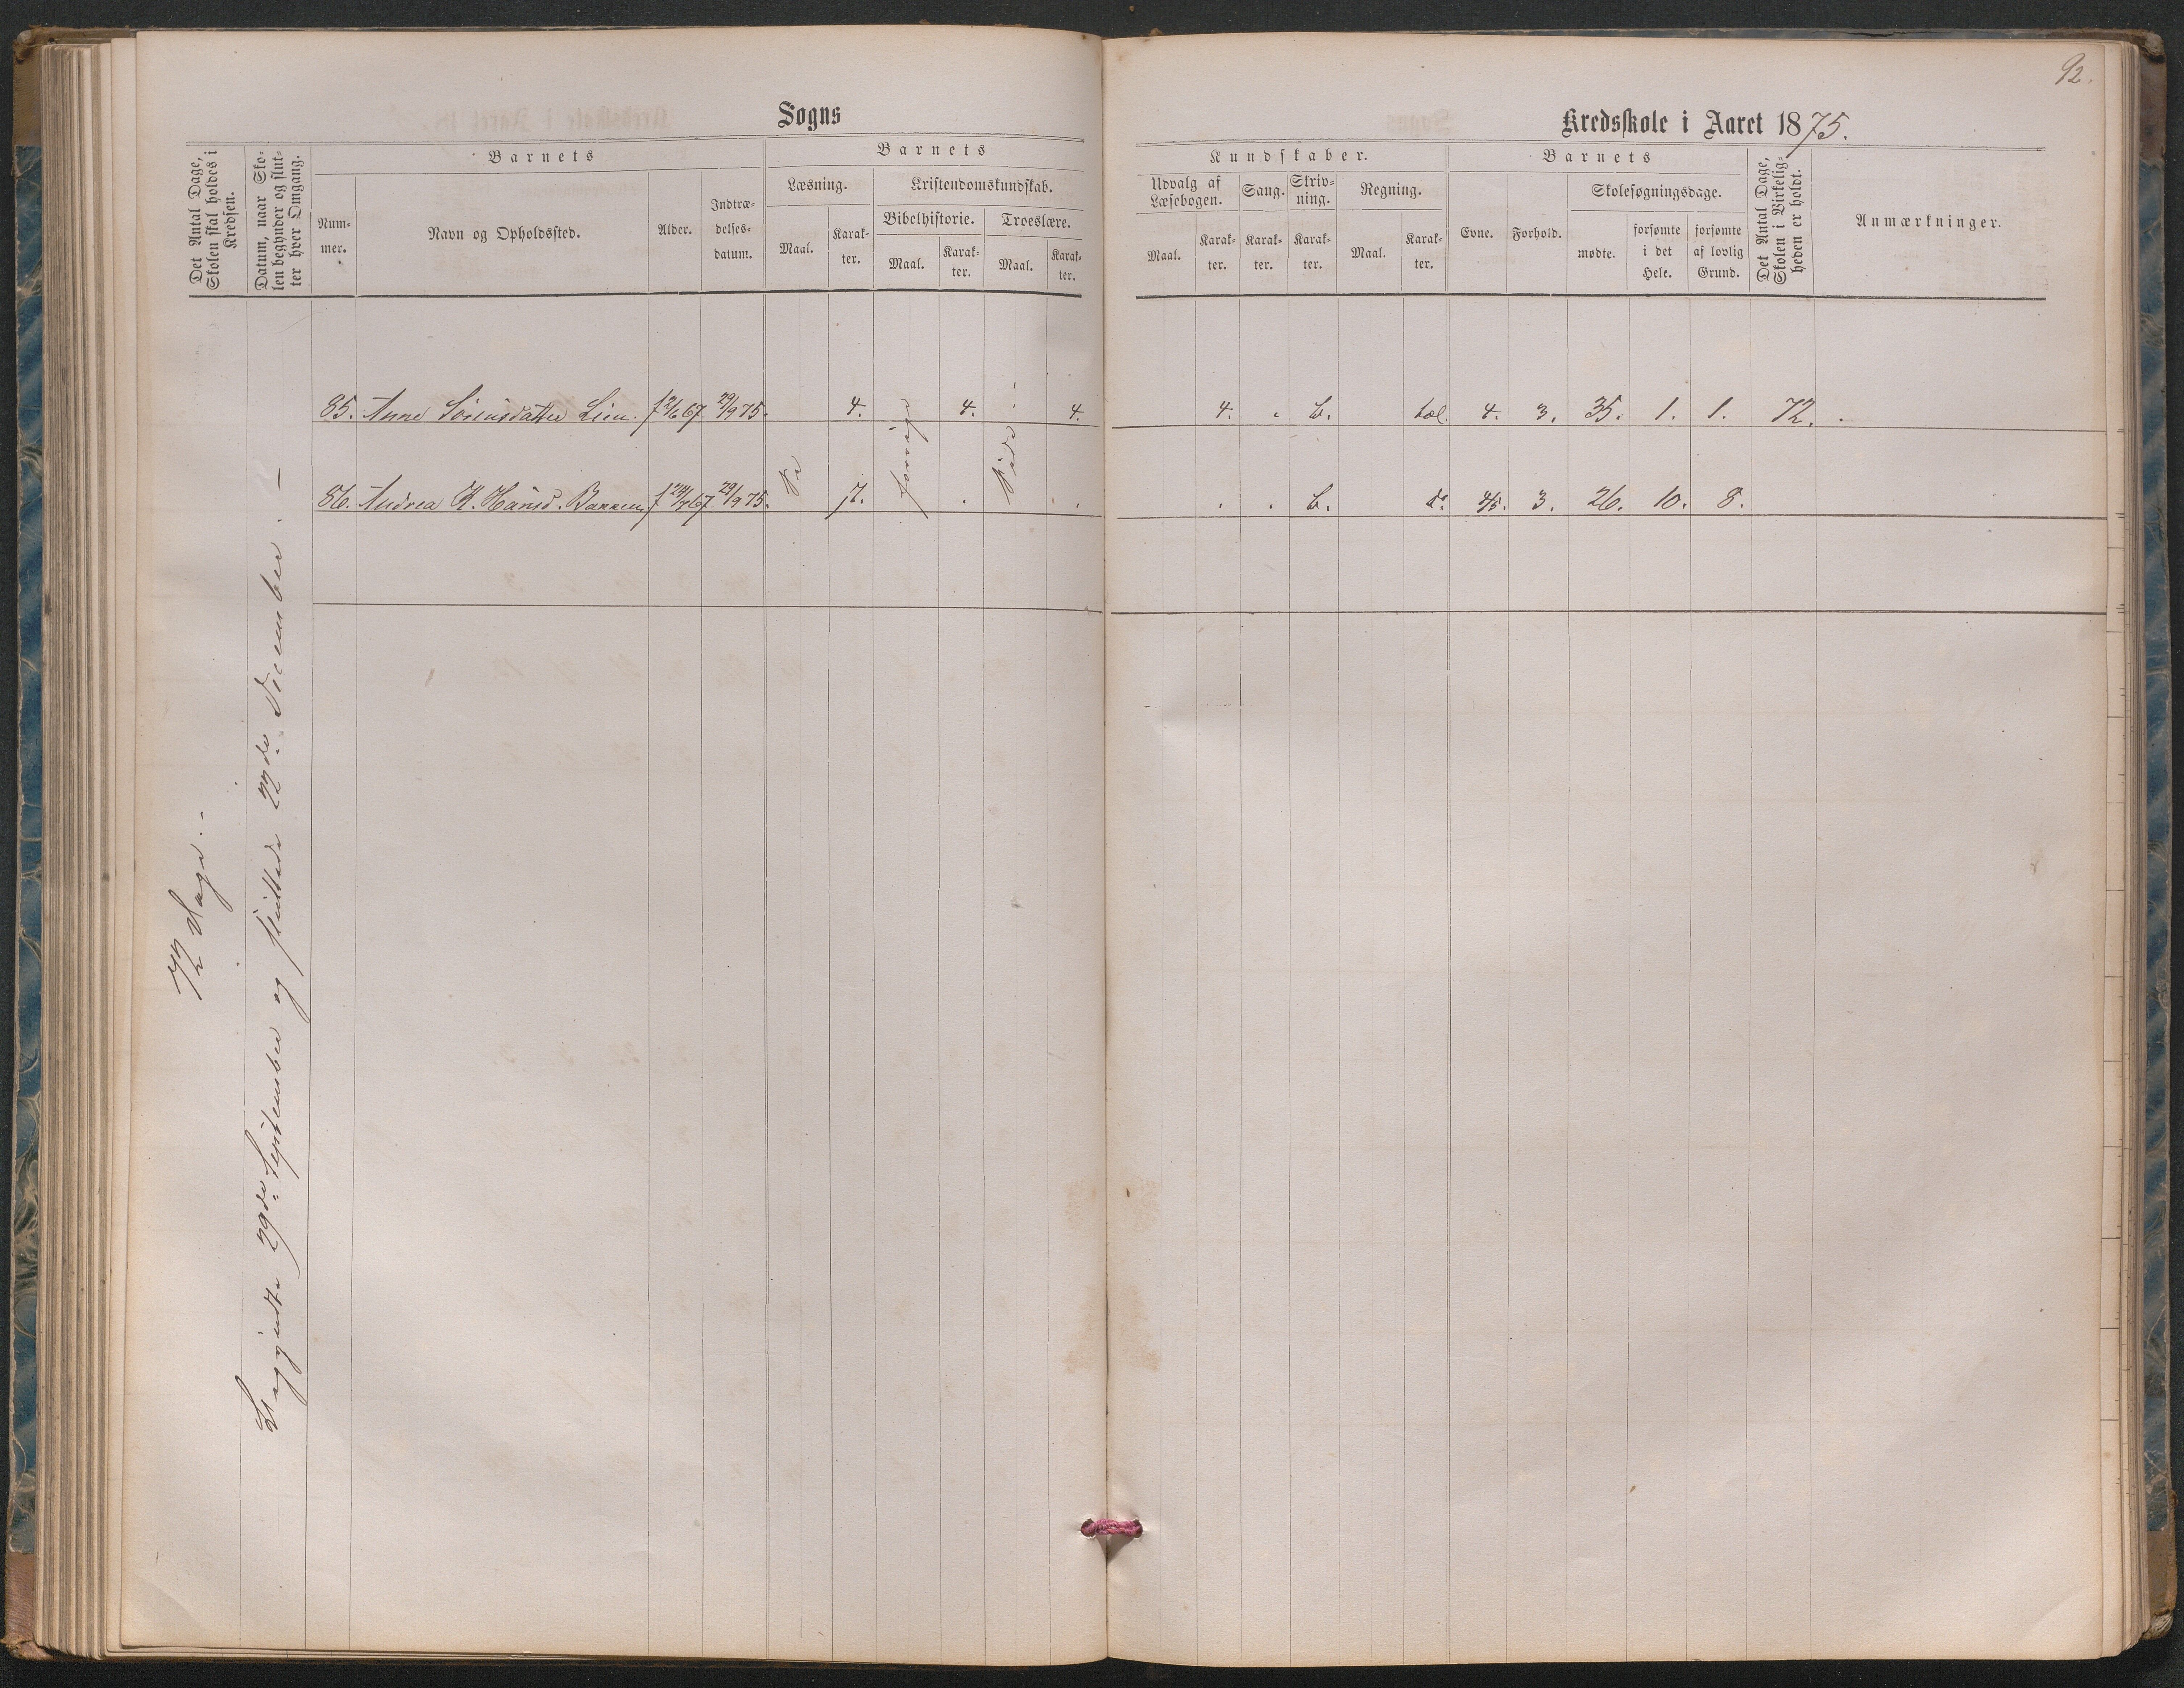 92.
Sogns
Kredsskole i Aaret 1875.
Det Antal Dage, Skolen skal holdes i Kredsen.
Datum, naar Skolen begynder og slutter hver Omgang.
Barnets
Nummer.
Navn og Opholdssted.
Alder.
Indtrædelsesdatum.
Barnets
Læsning.
Maal.
Karakter.
Kristendomskundskab.
Bibelhistorie.
Maal.
Karakter.
Troeslære.
Maal.
Karakter.
Kundskaber.
Udvalg af Læsebogen.
Maal.
Karakter.
Sang.
Karakter.
Skrivning.
Karakter.
Regning.
Maal.
Karakter.
Barnets
Evne.
Forhold.
Skolesøgningsdage.
mødte.
forsømte i det Hele.
forsømte af lovlig Grund.
Det Antal Dage, Skolen i Virkeligheden er holdt.
Anmærkninger.
85. Anne Sørensdatter Lien. f 2/6 67 29/9 75. 4. 4. 4. 4. . b. tæl. 4. 3. 35. 1. 1. 72. .
86. Andrea K. Hansd. f 24/7 67 29/9 75. 7. . . . . b. do 4/5. 3. 26. 10. 8.
Se forrige Side.
72 Dage. -
Begyndte 29de September og sluttede 22de December. -